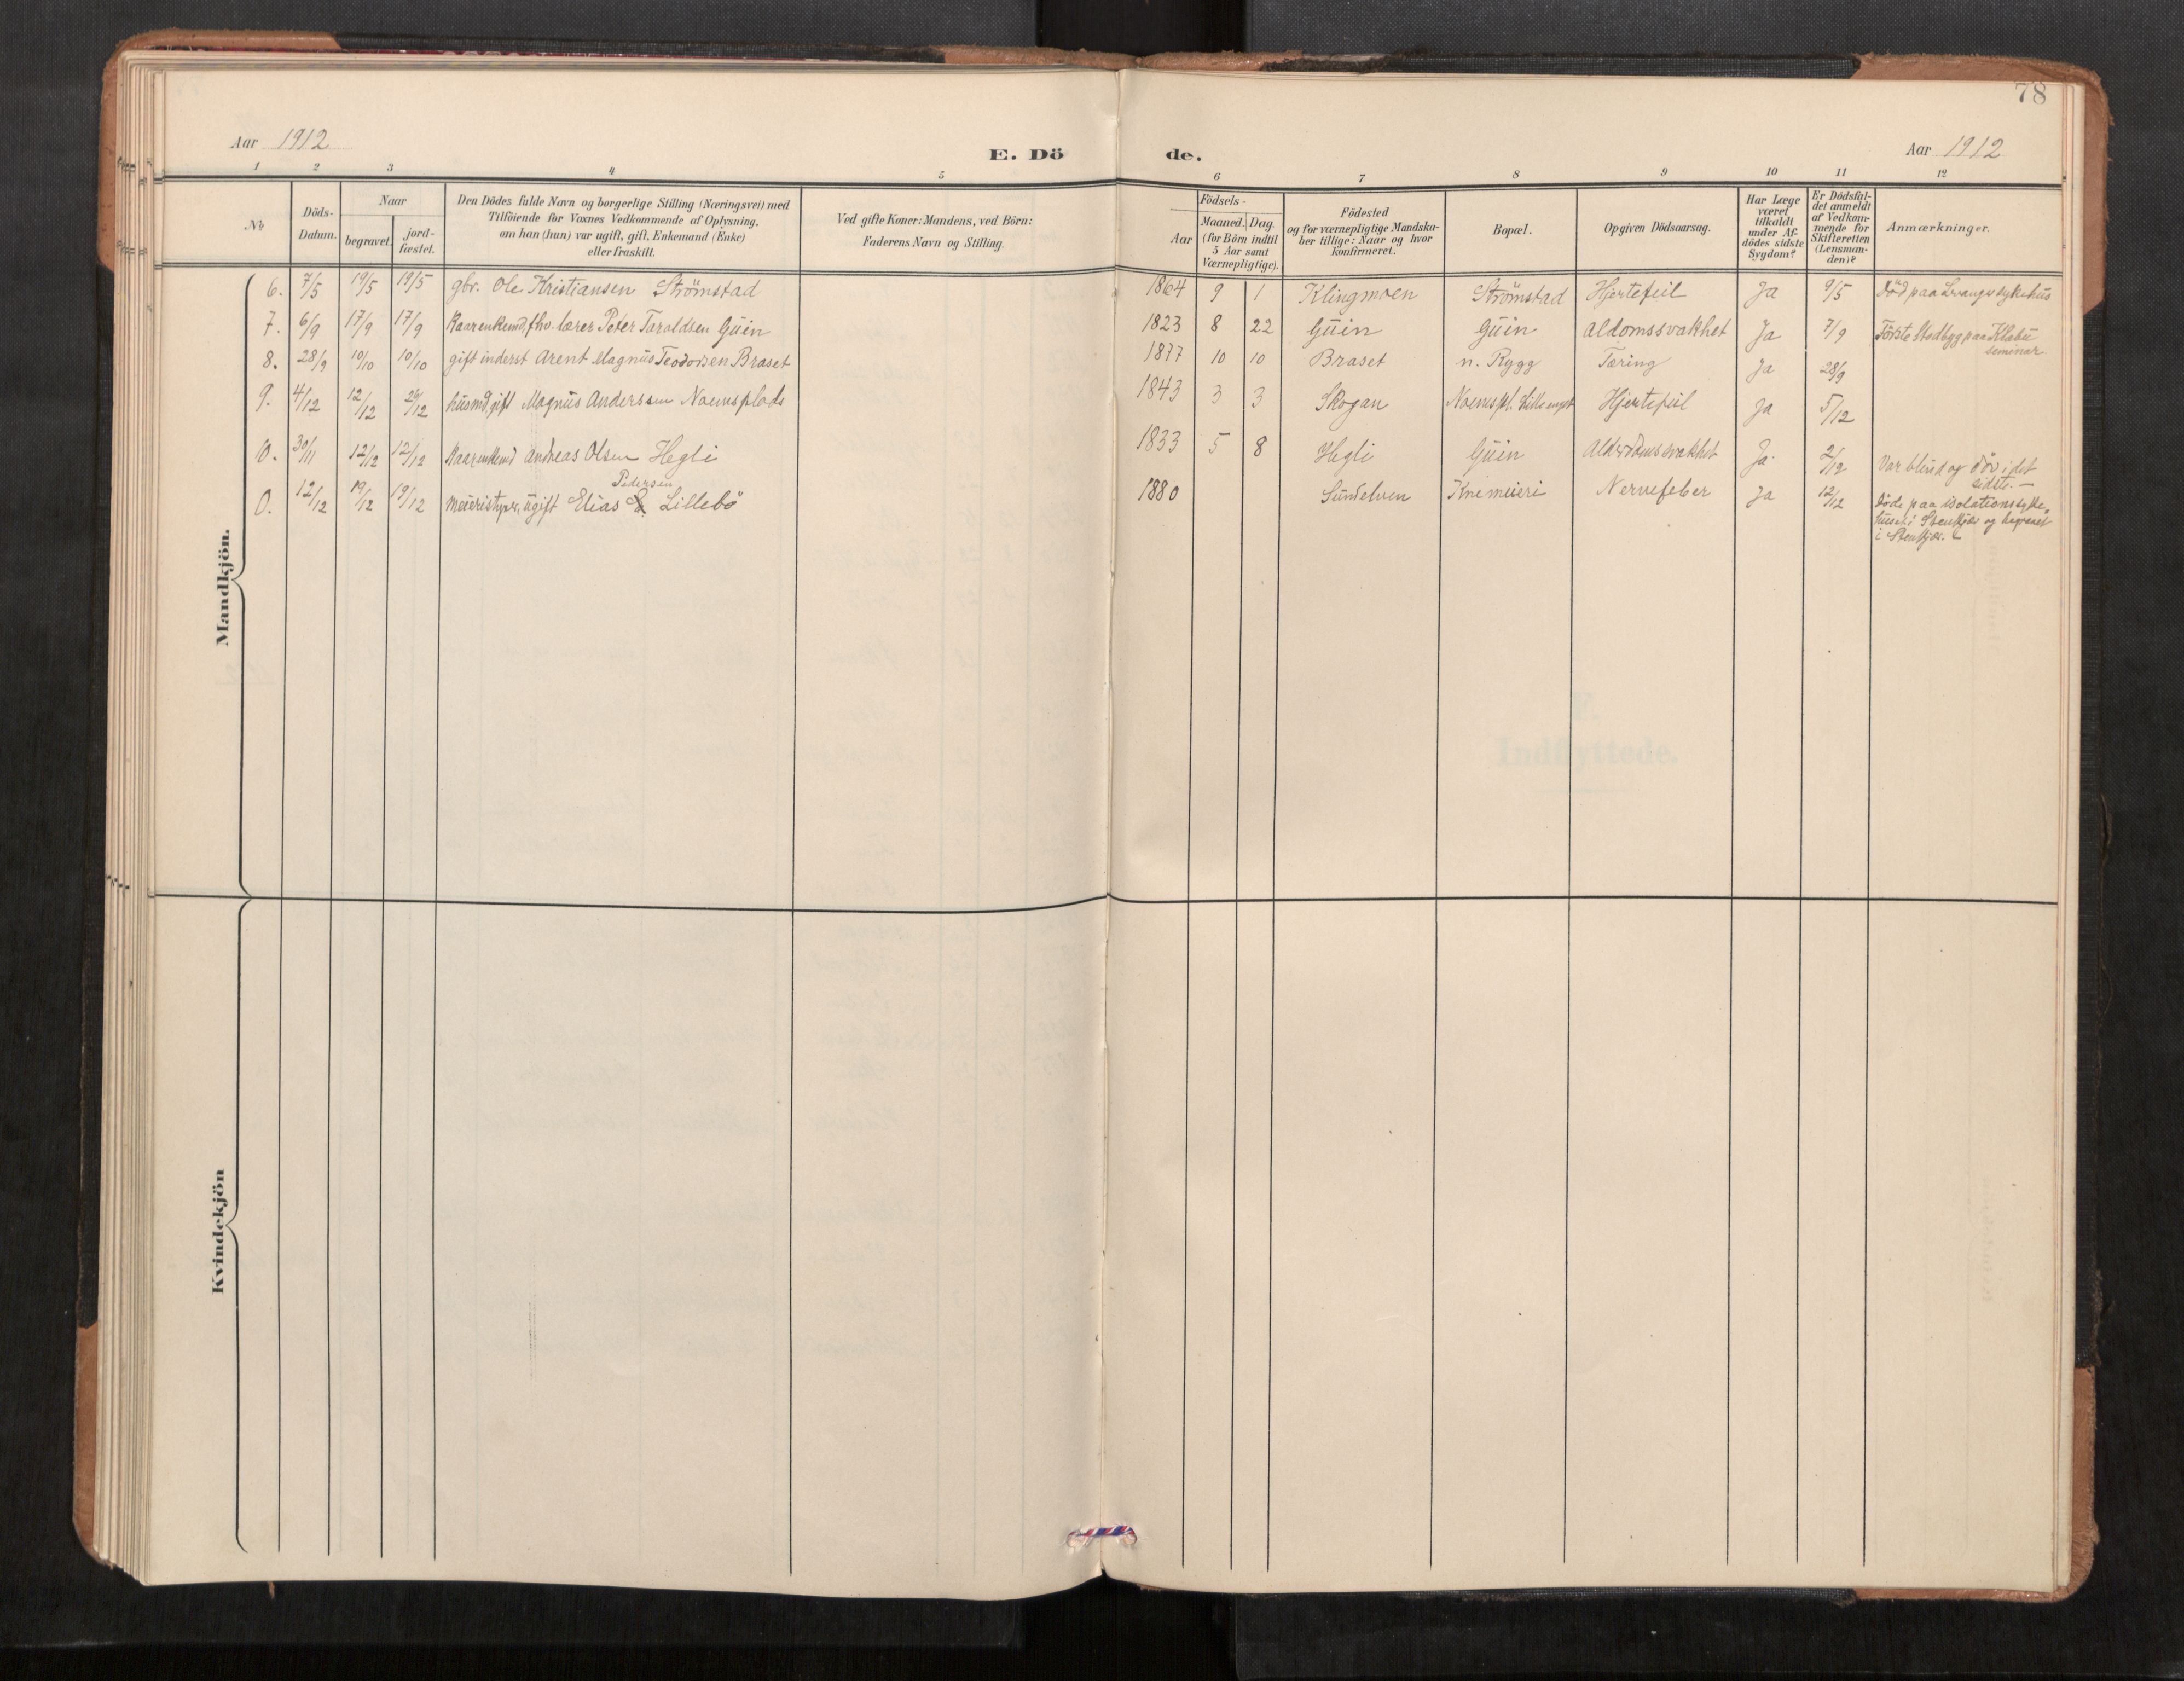 78
Aar 1912
E. Dö de.
Aar 1912
1 2 3 4 5 6 7 8 9 10 11 12
No
Döds-
Datum.
Naar
begravet.
jord-
fæstet.
Den Dödes fulde Navn og borgerlige Stilling (Næringsvei) med
Tilföiende for Voxnes Vedkommende af Oplysning,
om han (hun) var ugift, gift, Enkemand (Enke)
eller fraskilt.
Ved gifte Koner: Mandens, ved Börn:
Faderens Navn og Stilling.
Födsels-
Aar
Maaned. Dag.
(for Börn indtil
5 Aar samt
Værnepligtige).
Födested
og for værnepligtige Mandska-
ber tillige: Naar og hvor
konfirmeret.
Bopæl.
Opgiven Dödsaarsag.
Har Læge
været
tilkaldt
under Af-
dödes sidste
Sygdom?
Er Dödsfal-
det anmeldt
af Vedkom-
mende for
Skifteretten
(Lensman-
den)?
Anmærkninger.
Mandkjön.
6. 7/5 19/5 19/5 gbr. Ole Kristiansen Strömstad 1864 9 1 Klingmoen Strömstad Hjertefeil Ja 9/5 Död paa Levanger sykehus
7. 6/9 17/9 17/9 Kaarenkemd, fhv. lærer Peter Taraldsen Guin 1823 8 22 Guin Guin Aldomssvakhet Ja 7/9 Förste Stadbygg paa Klæbu
seminar.
8. 28/9 10/10 10/10 gift inderst Arent Magnus Teodorsen Braset 1877 10 10 Braset n. Rygg Tæring Ja 28/9
9. 4/12 12/12 26/12 husmd, gift Magnus Anderssen Noemsplads 1843 3 3 Skogan Noemspl. Hjertefeil Ja 5/12
10. 30/11 12/12 12/12 Kaarenkemd Andreas Olsen Hegli 1833 5 8 Hegli Guin Alderdomssvakhet Ja 2/12 Var blind og döv i det
sidste. —
Pedersen
0. 12/12 19/12 19/12 meieristyrer, ugift Elias Lillebö 1880 Sundelven Knemeieri Nervefeber Ja 12/12 Döde paa isolationssyke-
huset i Stenkjær og begravet
i Stenkjær.
Indflyttede.
Kvindekjön